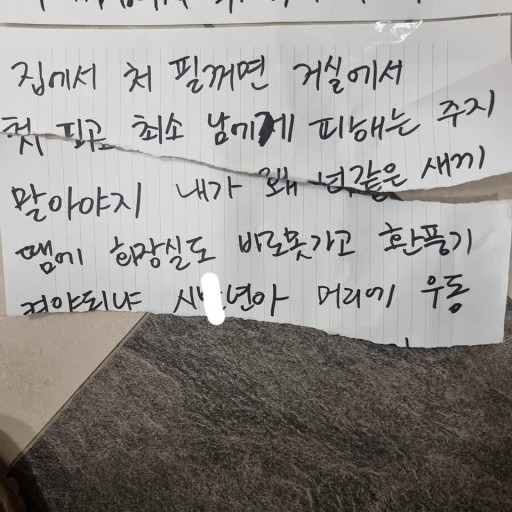 집에서 쳐 필꺼면 거실에서
쳐 피고 최소 남에게 피해는 주지
말아야지 내가 왜 너같은 새끼
땜에 화장실도 바로못가고 환풍기
켜야되냐 시 년아 머리에 우동